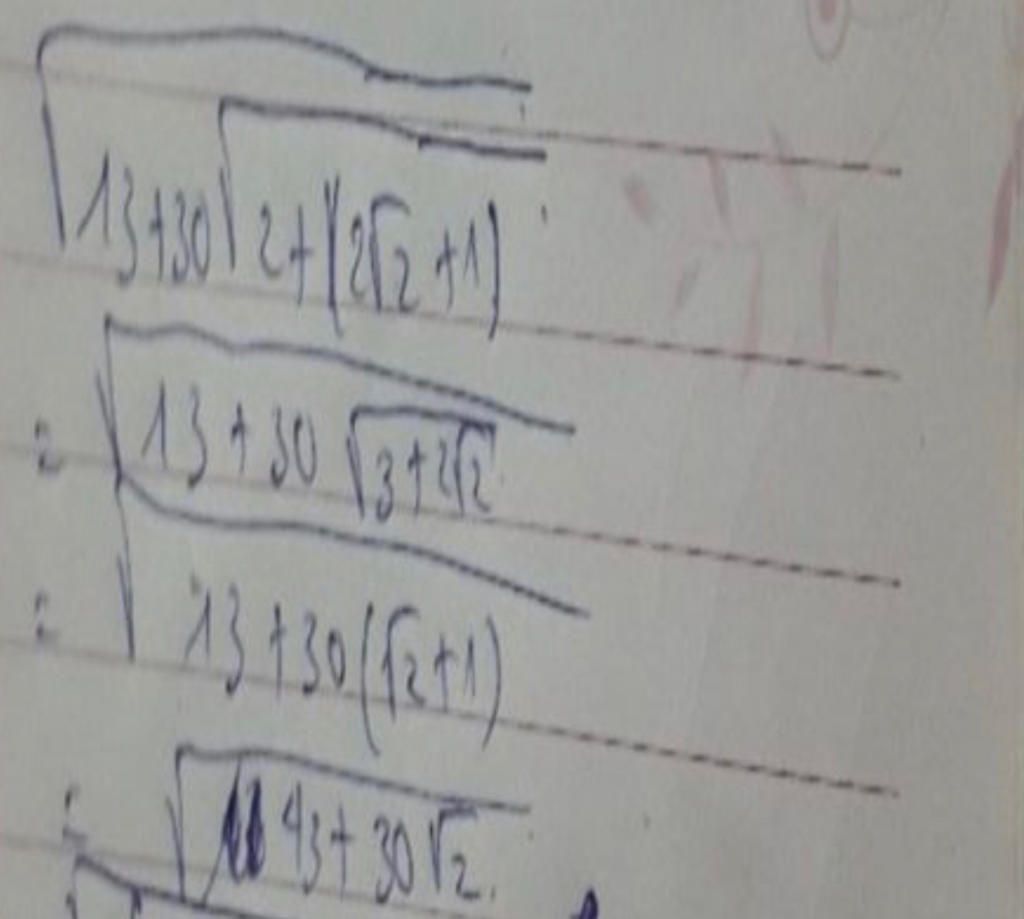 √(13+30√(2+(2√2+1)))
= √(13+30√(3+2√2))
= √(13+30(√2+1))
= √(43+30√2)